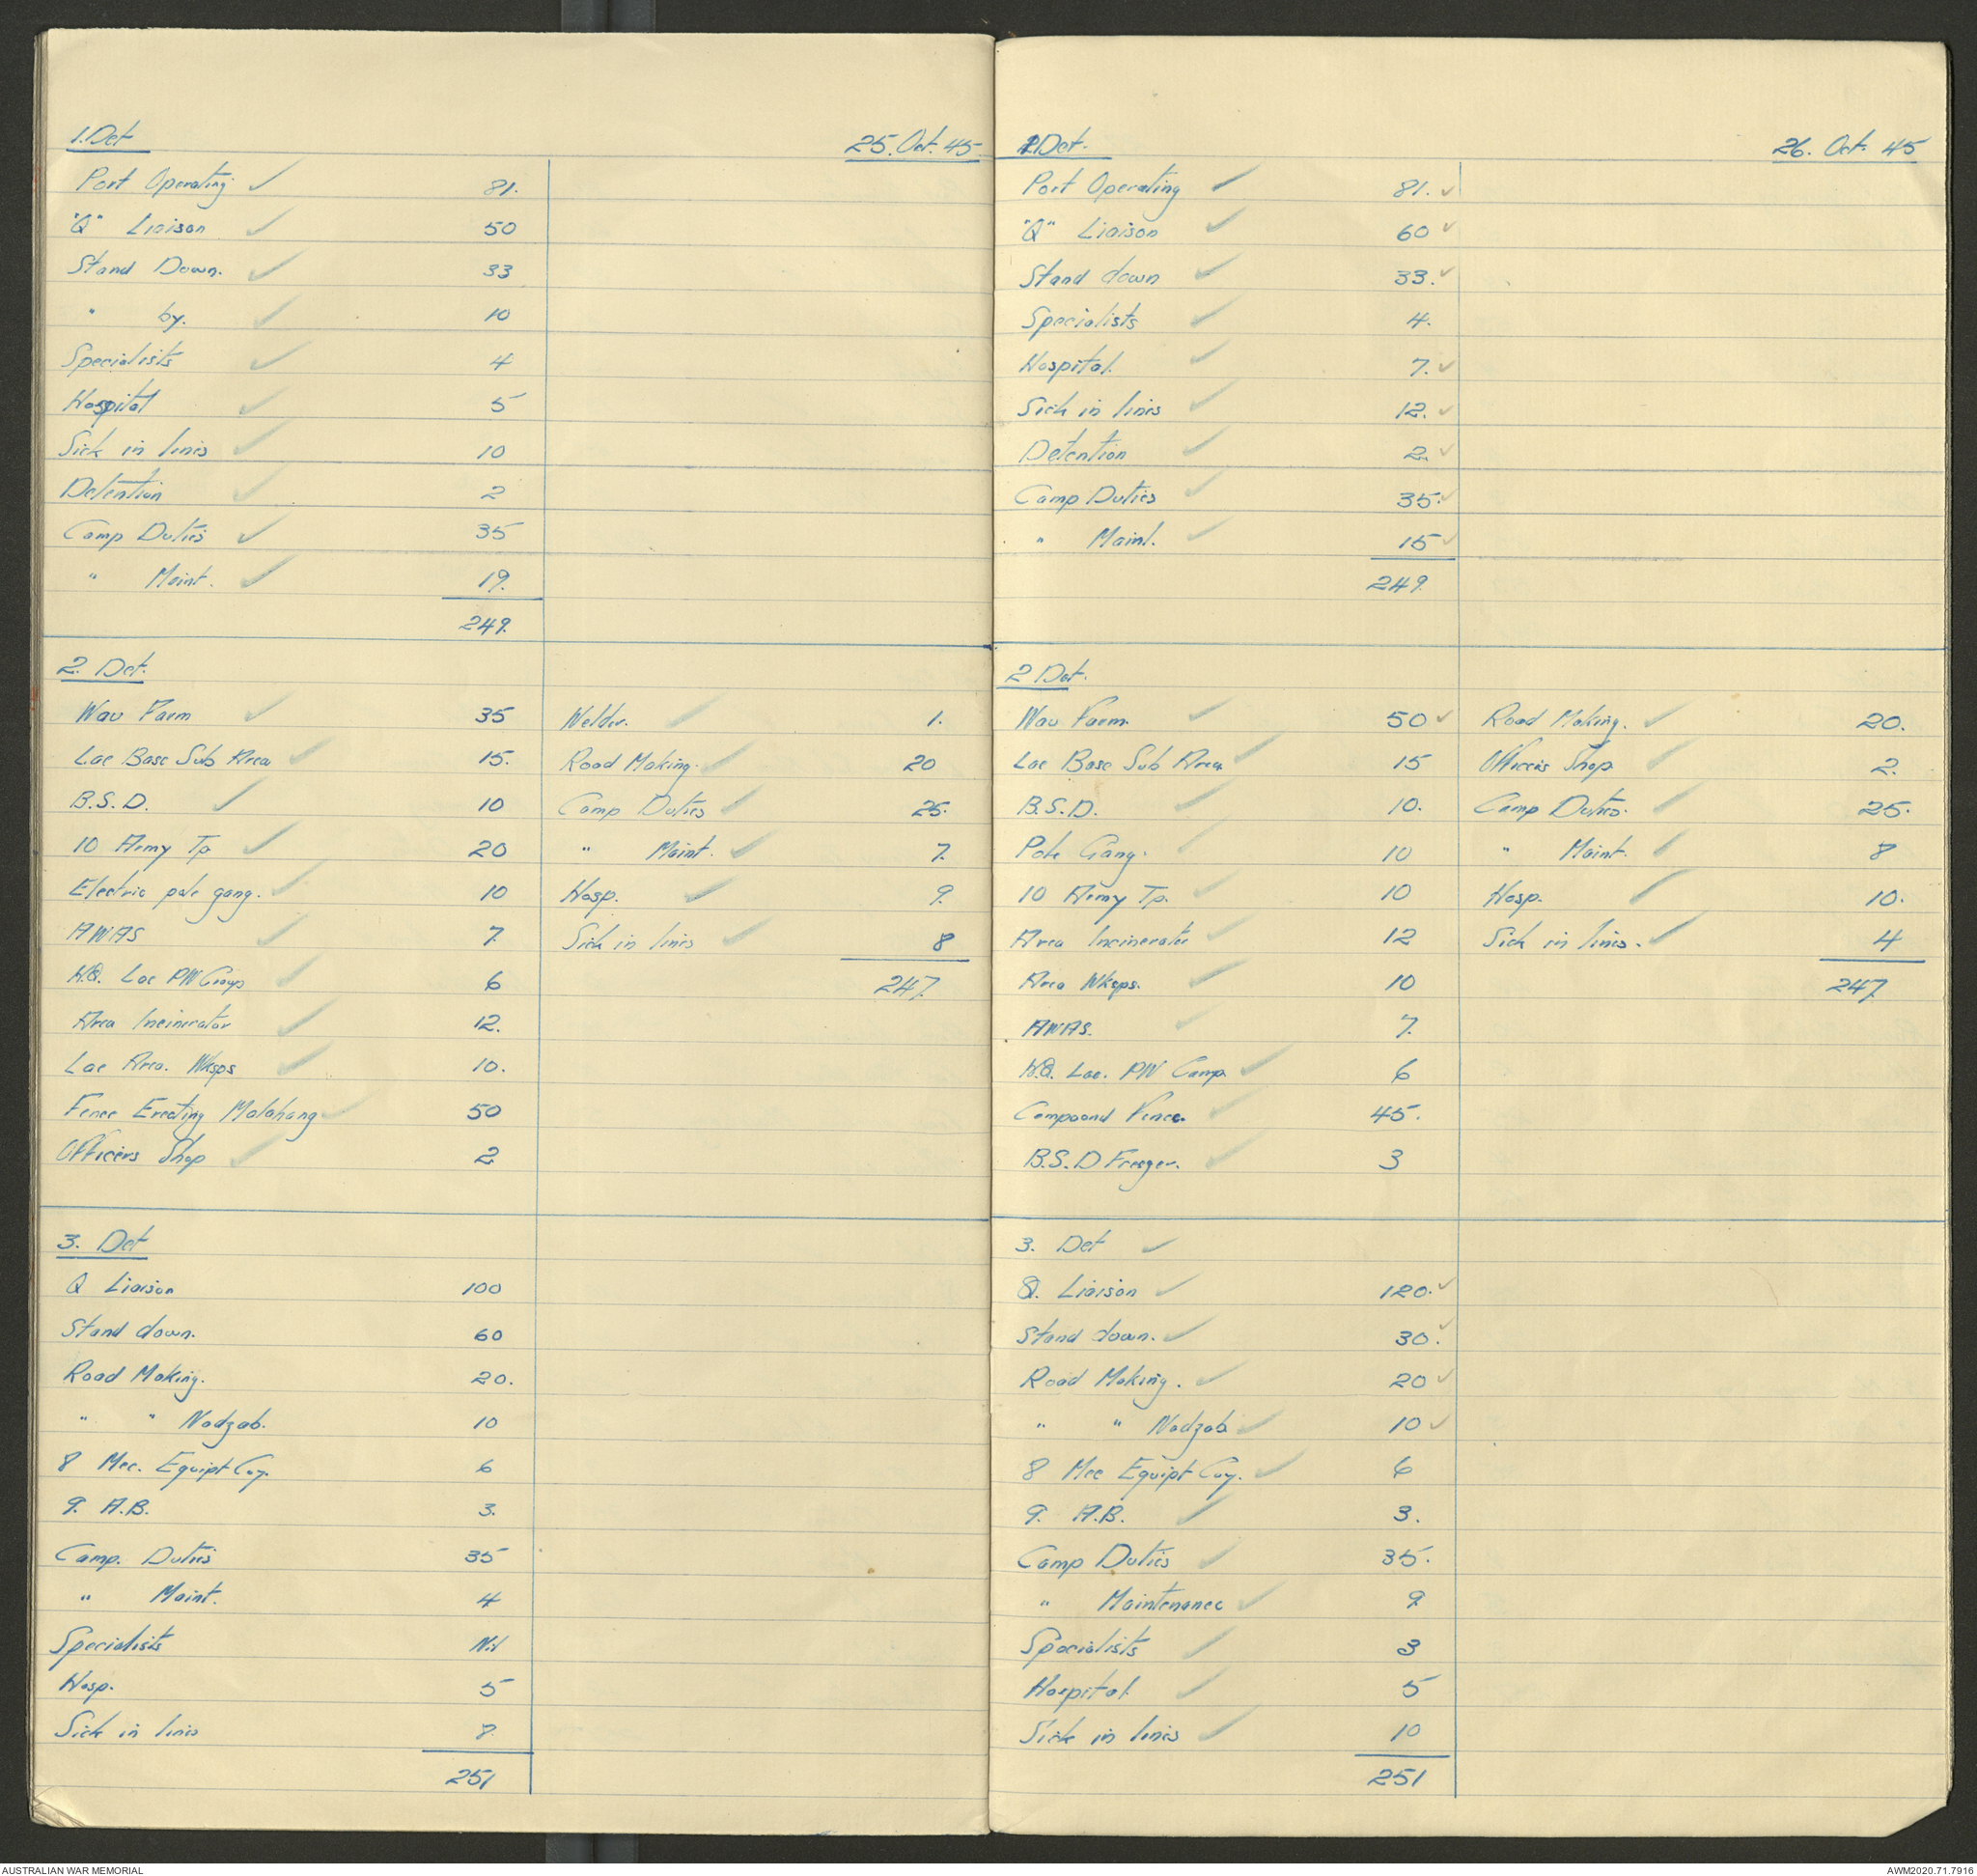 1. Det 25. Oct. 45
Port Operating ✓ 81.
"Q" Liaison ✓ 50
Stand Down. ✓ 33
" by. ✓ 10
Specialists ✓ 4
Hospital ✓ 5
Sick in lines ✓ 10
Detention ✓ 2
Camp Duties ✓ 35
" Maint. ✓ 19.
249.
2. Det.
Wau Farm ✓ 35
Lae Base Sub Area ✓ 15.
B.S.D. ✓ 10
10 Army Tp ✓ 20
Electric pole gang. ✓ 10
AWAS ✓ 7.
H.Q. Lae PW Camp ✓ 6
Area Incinerator ✓ 12.
Lae Area. Wksps ✓ 10.
Fence Erecting Malahang ✓ 50
Officers Shop ✓ 2
Welder. ✓ 1.
Road Making. ✓ 20
Camp Duties ✓ 25.
" Maint. ✓ 7.
Hosp. ✓ 9.
Sick in lines ✓ 8
247.
3. Det
Q Liaison 100
Stand down. 60
Road Making. 20.
" " Nadzab. 10
8 Mec. Equipt Coy. 6
9. A.B. 3.
Camp. Duties 35
" Maint. 4
Specialists Nil
Hosp. 5
Sick in lines 8
251
1. Det. 26. Oct. 45
Port Operating ✓ 81. ✓
"Q" Liaison ✓ 60 ✓
Stand down ✓ 33. ✓
Specialists ✓ 4.
Hospital. ✓ 7. ✓
Sick in lines ✓ 12. ✓
Detention ✓ 2. ✓
Camp Duties ✓ 35. ✓
" Maint. ✓ 15 ✓
249.
2 Det.
Wau Farm. ✓ 50 ✓
Lae Base Sub Area ✓ 15
B.S.D. ✓ 10.
Pole Gang. ✓ 10
10 Army Tp. ✓ 10
Area Incinerator ✓ 12
Area Wksps. ✓ 10
AWAS. ✓ 7.
H.Q. Lae. PW Camp ✓ 6
Compound Fence. ✓ 45.
B.S.D Freezer. ✓ 3
Road Making. ✓ 20.
Officers Shop ✓ 2.
Camp Duties. ✓ 25.
" Maint. ✓ 8
Hosp. ✓ 10.
Sick in lines. ✓ 4
247.
3. Det ✓
Q. Liaison ✓ 120. ✓
Stand down. ✓ 30. ✓
Road Making. ✓ 20 ✓
" " Nadzab ✓ 10 ✓
8 Mec Equipt Coy. ✓ 6
9. A.B. ✓ 3.
Camp Duties ✓ 35.
" Maintenance ✓ 9.
Specialists ✓ 3
Hospital. ✓ 5
Sick in lines ✓ 10
251
AUSTRALIAN WAR MEMORIAL AWM2020.71.7916